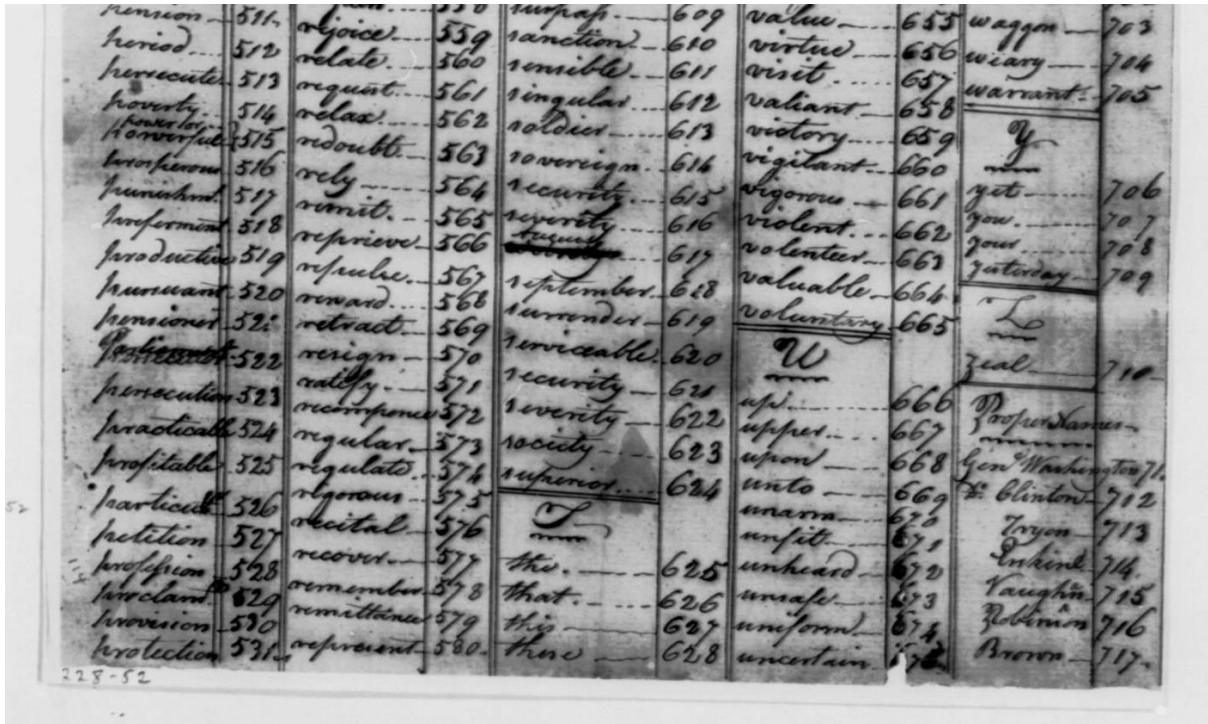 pension 511
period 512
persecute 513
poverty 514
power for
powerful 515
prosperous 516
punishmt. 517
preferment 518
productive 519
pursuant 520
pensioner 521
522
persecution 523
practicable 524
profitable 525
particular 526
petition 527
profession 528
proclamn. 529
provision 530
protection 531
rejoice 559
relate 560
request 561
relax 562
redoubt 563
rely 564
remit 565
reprieve 566
repulse 567
reward 568
retract 569
resign 570
ratefy 571
recompence 572
regular 573
regulate 574
rigorous 575
recital 576
recover 577
remember 578
remittance 579
represent 580
surpass 609
sanction 610
sensible 611
singular 612
soldier 613
sovereign 614
security 615
severity 616
617
september 618
surrender 619
serviceable 620
security 621
severity 622
society 623
superior 624
T
the 625
that 626
this 627
these 628
value 655
virtue 656
visit 657
valiant 658
victory 659
vigilant 660
vigorous 661
violent 662
volenteer 663
valuable 664
voluntary 665
U
up 666
upper 667
upon 668
unto 669
unarm 670
unfit 671
unheard 672
unsafe 673
uniform 674
uncertain 675
waggon 703
weary 704
warrant 705
Y
yet 706
you 707
your 708
yesterday 709
Z
zeal 710
Proper Names
Genl. Washington 711
Do. Clinton 712
Tryon 713
Erskine 714
Vaughn 715
Robinson 716
Brown 717
52
228-52